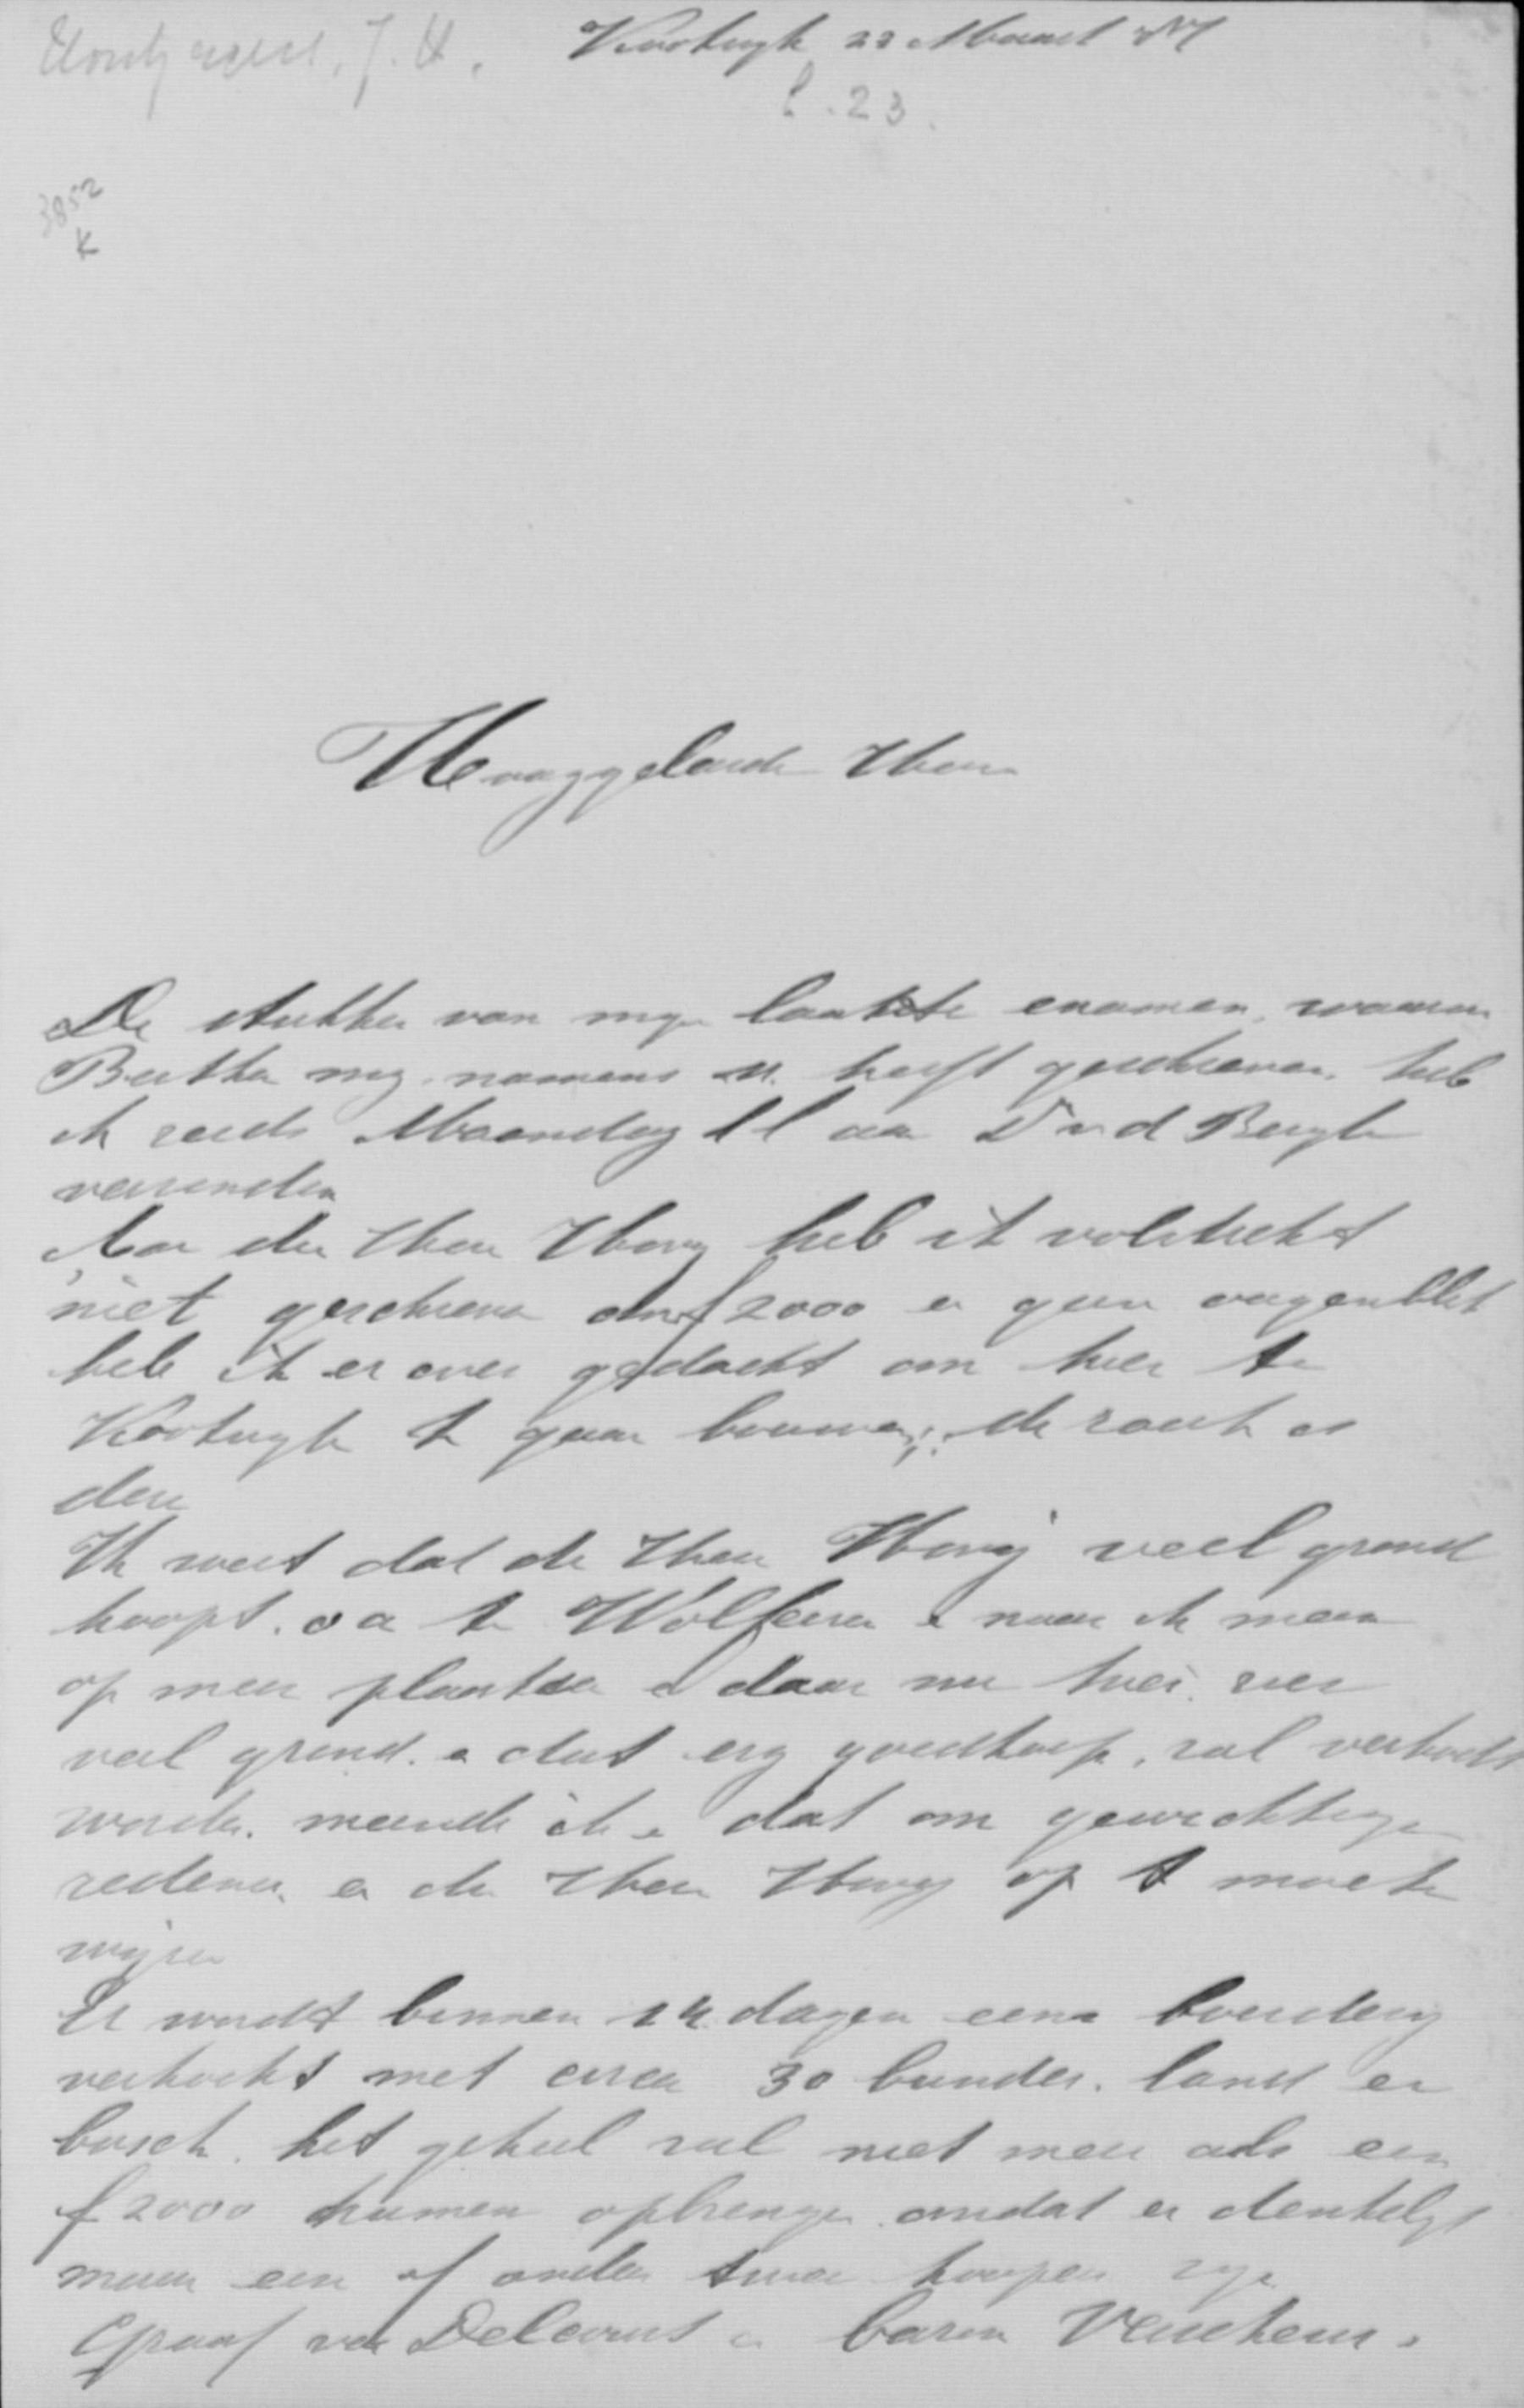 Kootwijk 22 Maart
23.
3852
K
Hooggeleerde Heer
De stukken van mijn laatste examen, waarom
Bertha mij namens U heeft geschreven, heb
ik reeds Maandag ll aan Dr v d Bergh
verzonden
Aan den Heer Hovy heb ik volstrekt
niet geschreven om f2000 en geen oogenblik
heb ik er over gedacht om hier te
Kootwijk te gaan bouwen; de zaak is
deze
Ik weet dat de Heer Hovy veel grond
koopt. o a te Wolfheze & naar ik meen
op meer plaatsen & daar nu hier zeer
veel grond & dat erg goedkoop, zal verkocht
worden meende ik & dat om gewichtige
redenen er de Heer Hovy op te moeten
wijzen
Er wordt binnen 14 dagen eene boerderij
verkocht met circa 30 bunder land en
bosch. het geheel zal niet meer als een
f2000 kunnen opbrengen omdat er denkelijk
maar een of ander twee koopers zijn
Graaf van & baron